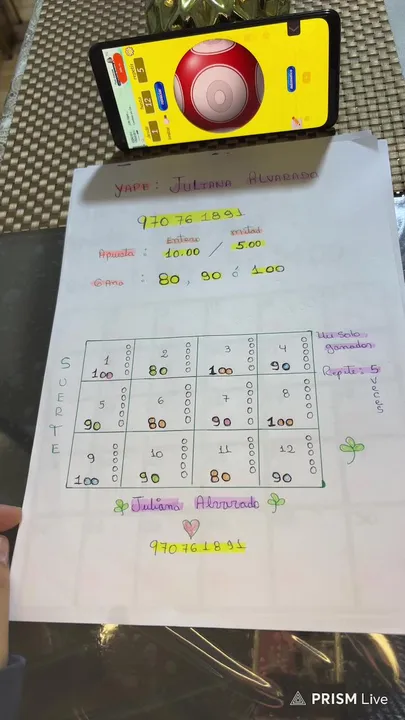 YAPE: JULIANA ALVARADO
970 76 1891
Entero mitad
Apuesta : 10.00 / 5.00
Gano : 80, 90 ó 100
Un solo
ganador
Repite: 5
veces
SUERTE
1 2 3 4
100 80 100 90
5 6 7 8
90 80 90 100
9 10 11 12
100 90 80 90
Juliana Alvarado
970 76 1891
5
12
1
PRISM Live